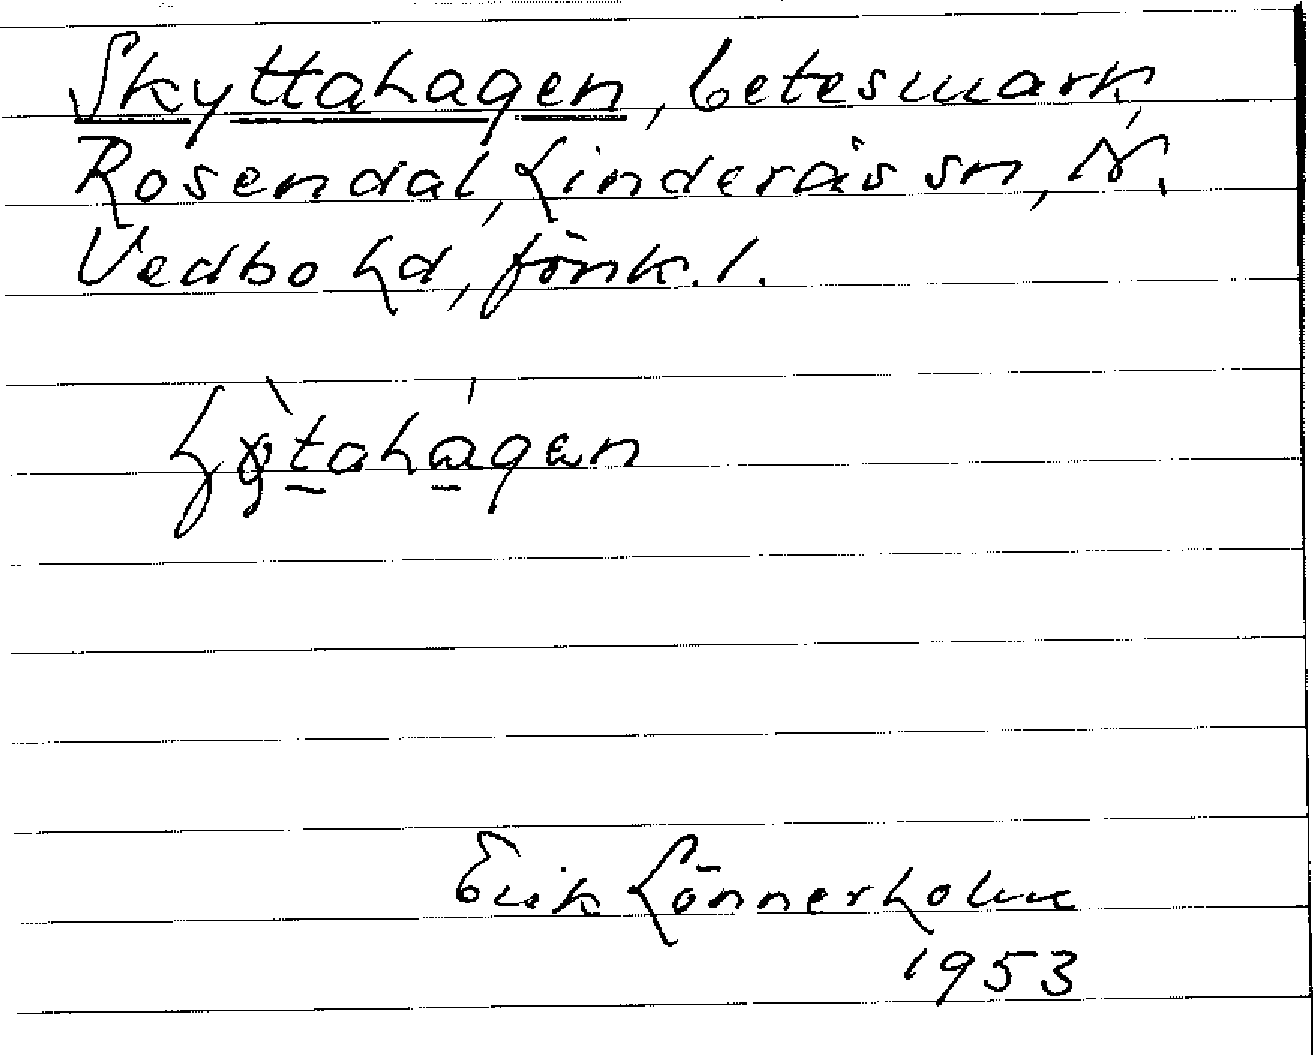 Skyttahagen, betesmark,
Rosendal, Linderås sn, N.
Vedbo hd, Jönk. l.
Erik Lönnerholm
1953